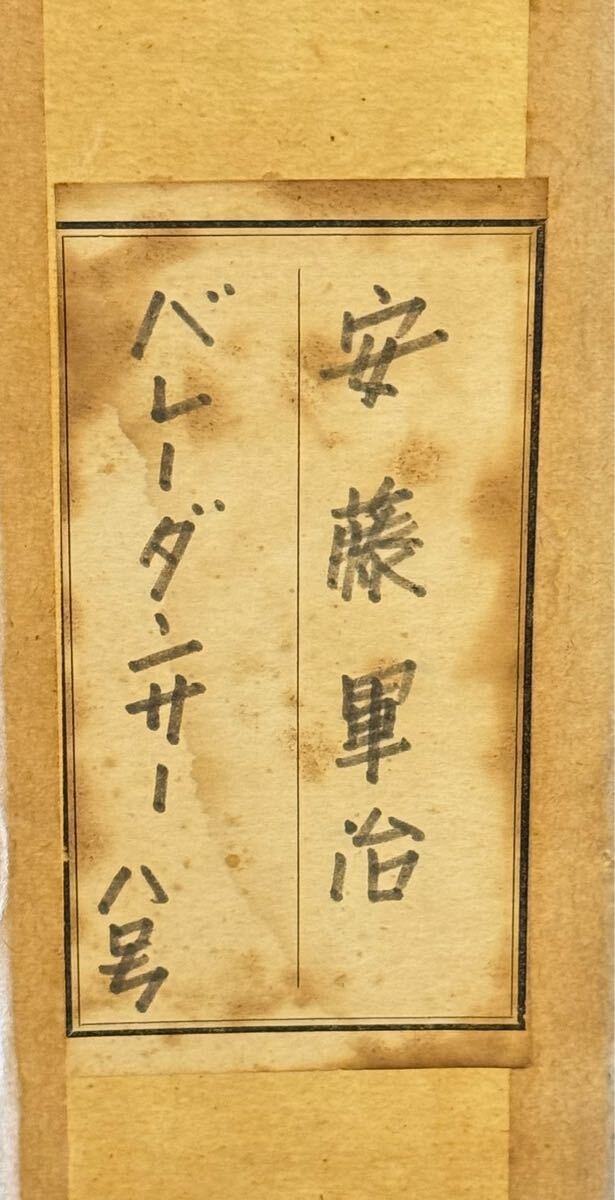 安藤軍治
バレーダンサー 八号